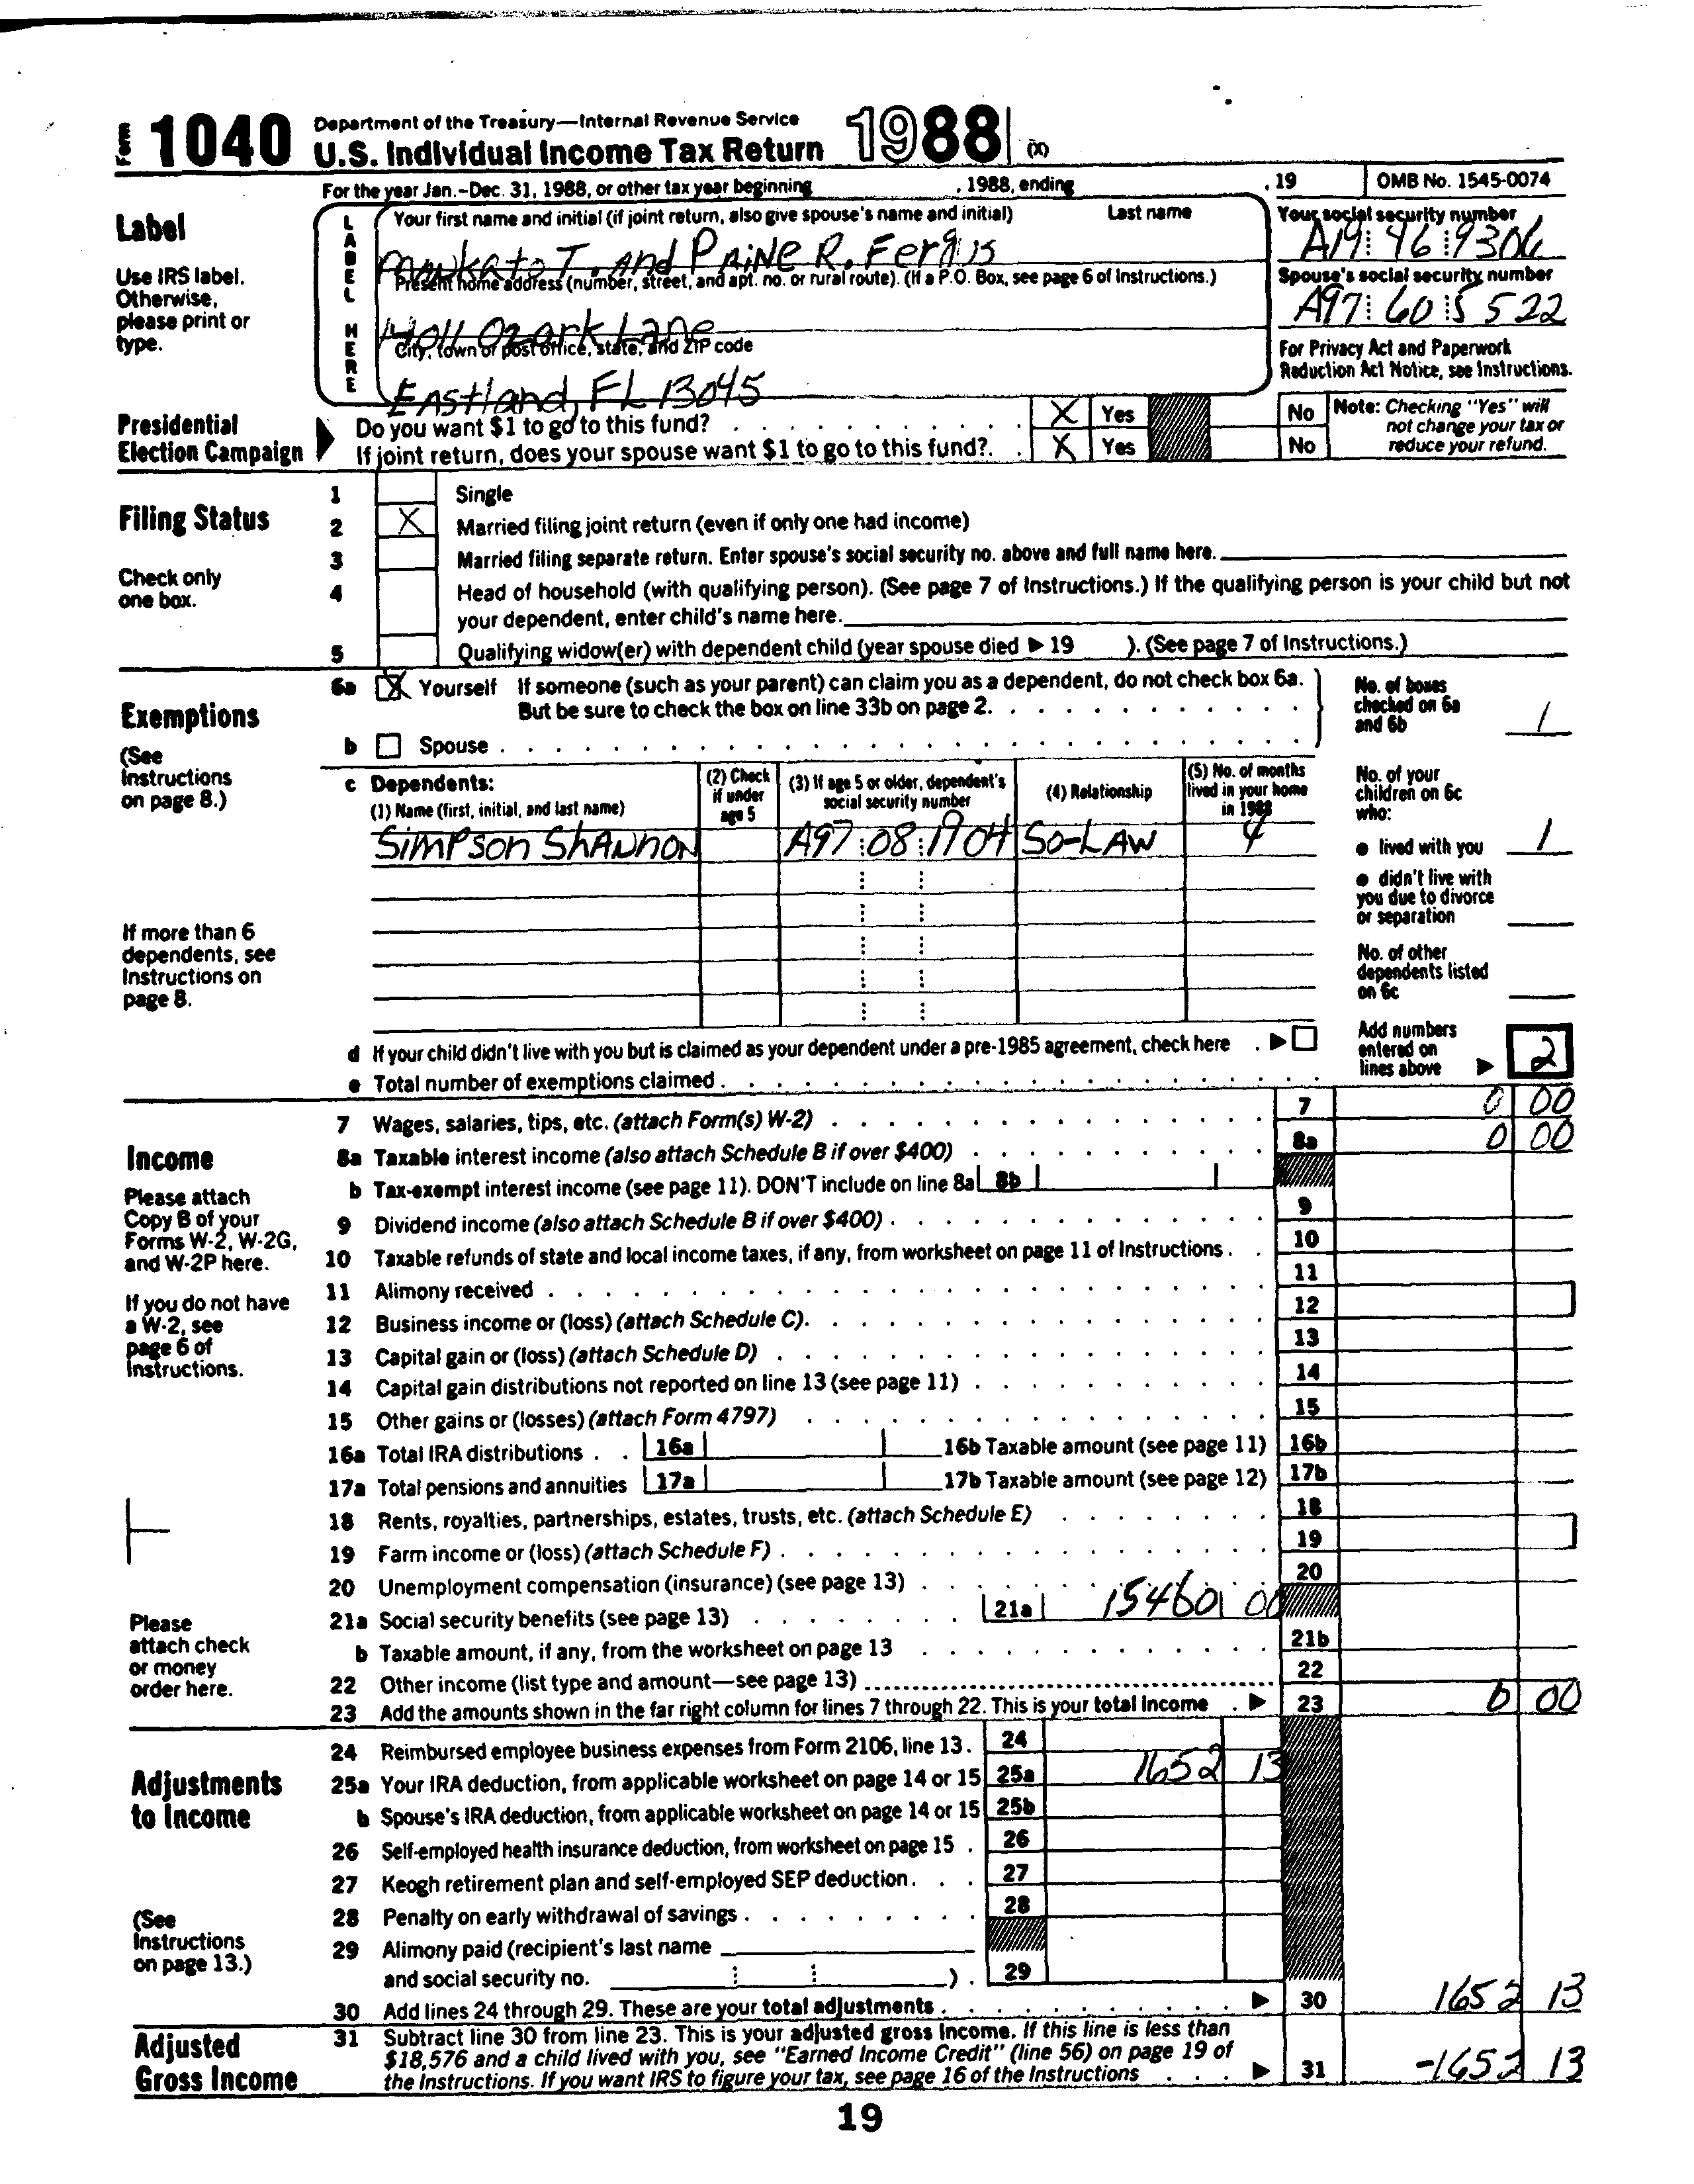 Form 1040 Department of the Treasury—Internal Revenue Service
U.S. Individual Income Tax Return 1988 (X)
For the year Jan.-Dec. 31, 1988, or other tax year beginning , 1988, ending , 19 OMB No. 1545-0074
Label
Use IRS label.
Otherwise,
please print or
type.
LABEL HERE
Your first name and initial (if joint return, also give spouse's name and initial) Last name
Mankato T. And PAiNE R. Fergus
Present home address (number, street, and apt. no. or rural route). (If a P.O. Box, see page 6 of Instructions.)
14011 Ozark Lane
City, town or post office, state, and ZIP code
EAstland, FL 13045
Your social security number
A19 46 9306
Spouse's social security number
A97 60 5522
For Privacy Act and Paperwork
Reduction Act Notice, see Instructions.
Presidential
Election Campaign
Do you want $1 to go to this fund? X Yes No
If joint return, does your spouse want $1 to go to this fund?. X Yes No
Note: Checking "Yes" will
not change your tax or
reduce your refund.
Filing Status
Check only
one box.
1 Single
2 X Married filing joint return (even if only one had income)
3 Married filing separate return. Enter spouse's social security no. above and full name here.
4 Head of household (with qualifying person). (See page 7 of Instructions.) If the qualifying person is your child but not
your dependent, enter child's name here.
5 Qualifying widow(er) with dependent child (year spouse died ▶ 19 ). (See page 7 of Instructions.)
Exemptions
(See
Instructions
on page 8.)
If more than 6
dependents, see
Instructions on
page 8.
6a X Yourself If someone (such as your parent) can claim you as a dependent, do not check box 6a.
But be sure to check the box on line 33b on page 2.
b Spouse
No. of boxes
checked on 6a
and 6b 1
c Dependents:
(1) Name (first, initial, and last name)
(2) Check
if under
age 5
(3) If age 5 or older, dependent's
social security number
(4) Relationship
(5) No. of months
lived in your home
in 1988
SiMPson ShANNON A97 08 1904 SO-LAW 4
No. of your
children on 6c
who:
● lived with you 1
● didn't live with
you due to divorce
or separation
No. of other
dependents listed
on 6c
d If your child didn't live with you but is claimed as your dependent under a pre-1985 agreement, check here ▶
e Total number of exemptions claimed
Add numbers
entered on
lines above ▶ 2
Income
Please attach
Copy B of your
Forms W-2, W-2G,
and W-2P here.
If you do not have
a W-2, see
page 6 of
Instructions.
Please
attach check
or money
order here.
7 Wages, salaries, tips, etc. (attach Form(s) W-2) 7 0 00
8a Taxable interest income (also attach Schedule B if over $400) 8a 0 00
b Tax-exempt interest income (see page 11). DON'T include on line 8a 8b
9 Dividend income (also attach Schedule B if over $400) 9
10 Taxable refunds of state and local income taxes, if any, from worksheet on page 11 of Instructions 10
11 Alimony received 11
12 Business income or (loss) (attach Schedule C). 12
13 Capital gain or (loss) (attach Schedule D) 13
14 Capital gain distributions not reported on line 13 (see page 11) 14
15 Other gains or (losses) (attach Form 4797) 15
16a Total IRA distributions 16a 16b Taxable amount (see page 11) 16b
17a Total pensions and annuities 17a 17b Taxable amount (see page 12) 17b
18 Rents, royalties, partnerships, estates, trusts, etc. (attach Schedule E) 18
19 Farm income or (loss) (attach Schedule F) 19
20 Unemployment compensation (insurance) (see page 13) 20
21a Social security benefits (see page 13) 21a 15460 00
b Taxable amount, if any, from the worksheet on page 13 21b
22 Other income (list type and amount—see page 13) 22
23 Add the amounts shown in the far right column for lines 7 through 22. This is your total income ▶ 23 0 00
Adjustments
to Income
(See
Instructions
on page 13.)
24 Reimbursed employee business expenses from Form 2106, line 13. 24
25a Your IRA deduction, from applicable worksheet on page 14 or 15 25a 1652 13
b Spouse's IRA deduction, from applicable worksheet on page 14 or 15 25b
26 Self-employed health insurance deduction, from worksheet on page 15 26
27 Keogh retirement plan and self-employed SEP deduction 27
28 Penalty on early withdrawal of savings 28
29 Alimony paid (recipient's last name
and social security no. ) 29
30 Add lines 24 through 29. These are your total adjustments ▶ 30 1652 13
Adjusted
Gross Income
31 Subtract line 30 from line 23. This is your adjusted gross income. If this line is less than
$18,576 and a child lived with you, see "Earned Income Credit" (line 56) on page 19 of
the Instructions. If you want IRS to figure your tax, see page 16 of the Instructions ▶ 31 -1652 13
19